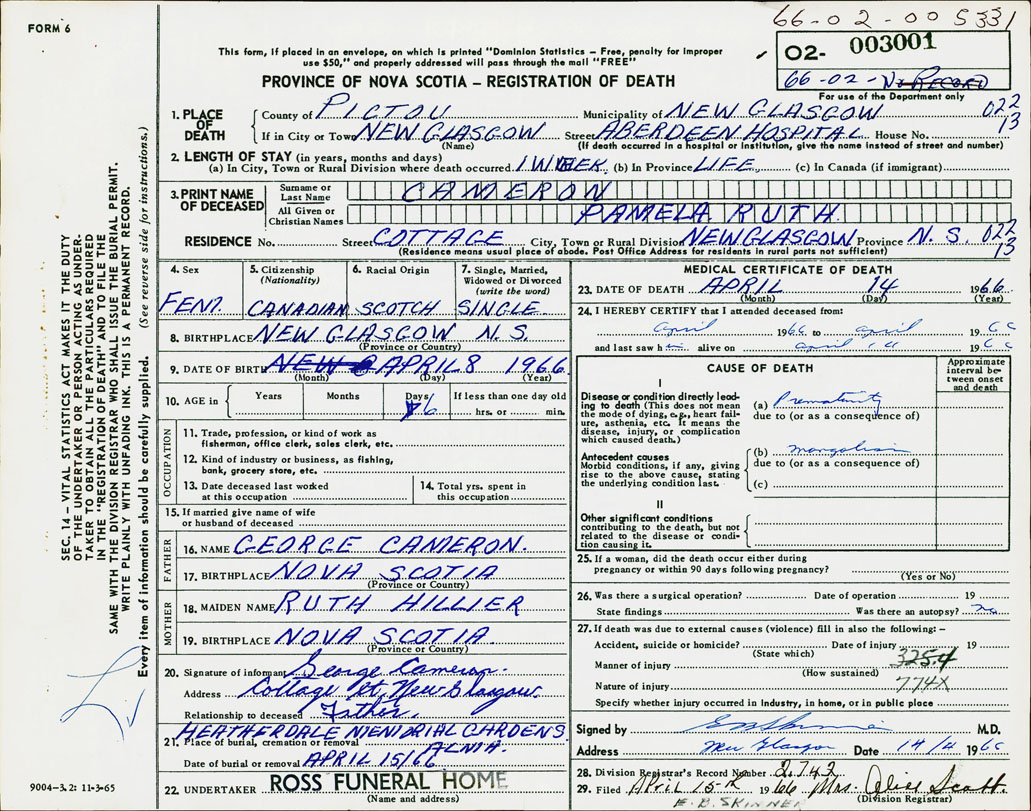 FORM 6
66-02-00 5331
This form, if placed in an envelope, on which is printed "Dominion Statistics – Free, penalty for improper
use $50," and properly addressed will pass through the mail "FREE"
02- 003001
66-02-No RECORD
For use of the Department only
PROVINCE OF NOVA SCOTIA – REGISTRATION OF DEATH
1. PLACE OF DEATH
County of PICTOU Municipality of NEW GLASGOW 022
If in City or Town NEW GLASGOW Street ABERDEEN HOSPITAL House No. 13
(Name) (If death occurred in a hospital or institution, give the name instead of street and number)
2. LENGTH OF STAY (in years, months and days)
(a) In City, Town or Rural Division where death occurred 1 WEEK (b) In Province LIFE (c) In Canada (if immigrant)
3. PRINT NAME OF DECEASED
Surname or Last Name CAMERON
All Given or Christian Names PAMELA RUTH
RESIDENCE No. Street COTTAGE City, Town or Rural Division NEW GLASGOW Province N. S. 022
(Residence means usual place of abode. Post Office Address for residents in rural parts not sufficient) 13
4. Sex FEM.
5. Citizenship (Nationality) CANADIAN
6. Racial Origin SCOTCH
7. Single, Married, Widowed or Divorced (write the word) SINGLE
8. BIRTHPLACE NEW GLASGOW N. S.
(Province or Country)
9. DATE OF BIRTH NEW G APRIL 8 1966
(Month) (Day) (Year)
10. AGE in Years Months Days 6 If less than one day old
hrs. or min.
OCCUPATION
11. Trade, profession, or kind of work as
fisherman, office clerk, sales clerk, etc.
12. Kind of industry or business, as fishing,
bank, grocery store, etc.
13. Date deceased last worked
at this occupation
14. Total yrs. spent in
this occupation
15. If married give name of wife
or husband of deceased
FATHER
16. NAME GEORGE CAMERON.
17. BIRTHPLACE NOVA SCOTIA
(Province or Country)
MOTHER
18. MAIDEN NAME RUTH HILLIER
19. BIRTHPLACE NOVA SCOTIA
(Province or Country)
20. Signature of informant George Cameron.
Address Cottage St, New Glasgow.
Relationship to deceased Father.
HEATHERDALE MEMORIAL GARDENS
21. Place of burial, cremation or removal ALMA.
Date of burial or removal APRIL 15/66
22. UNDERTAKER ROSS FUNERAL HOME
(Name and address)
MEDICAL CERTIFICATE OF DEATH
23. DATE OF DEATH APRIL 14 1966
(Month) (Day) (Year)
24. I HEREBY CERTIFY that I attended deceased from:
April 1966 to April 1966
and last saw h alive on April 14 1966
CAUSE OF DEATH
Approximate interval between onset and death
I
Disease or condition directly leading to death (This does not mean
the mode of dying, e.g., heart failure, asthenia, etc. It means the
disease, injury, or complication
which caused death.)
(a) Prematurity
due to (or as a consequence of)
Antecedent causes
Morbid conditions, if any, giving
rise to the above cause, stating
the underlying condition last.
(b) mongolism
due to (or as a consequence of)
(c)
II
Other significant conditions
contributing to the death, but not
related to the disease or condition causing it.
25. If a woman, did the death occur either during
pregnancy or within 90 days following pregnancy?
(Yes or No)
26. Was there a surgical operation? Date of operation 19
State findings Was there an autopsy? no
27. If death was due to external causes (violence) fill in also the following: –
Accident, suicide or homicide? Date of injury 19
(State which) 325.4
Manner of injury
(How sustained)
Nature of injury 774X
Specify whether injury occurred in industry, in home, or in public place
Signed by M.D.
Address New Glasgow Date 14/4 1966
28. Division Registrar's Record Number 2742
29. Filed April 15 1966 Mrs. Alice Scott.
(Division Registrar)
E. B. SKINNER
SEC. 14 – VITAL STATISTICS ACT MAKES IT THE DUTY
OF THE UNDERTAKER OR PERSON ACTING AS UNDERTAKER TO OBTAIN ALL THE PARTICULARS REQUIRED
IN THE "REGISTRATION OF DEATH" AND TO FILE THE
SAME WITH THE DIVISION REGISTRAR WHO SHALL ISSUE THE BURIAL PERMIT.
WRITE PLAINLY WITH UNFADING INK. THIS IS A PERMANENT RECORD.
Every item of information should be carefully supplied. (See reverse side for instructions.)
9004-3.2: 11-3-65